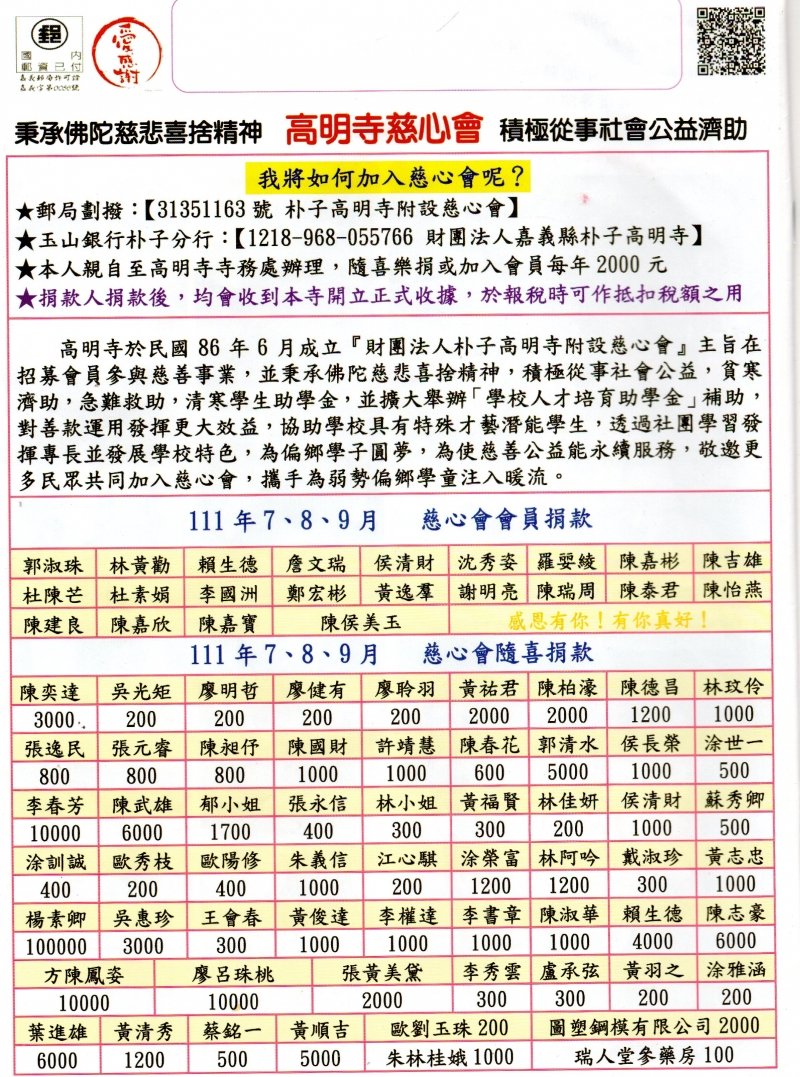 郵
國內
郵資已付
嘉義郵局許可證
嘉義字第0086號
愛感謝
秉承佛陀慈悲喜捨精神 高明寺慈心會 積極從事社會公益濟助
我將如何加入慈心會呢？
★郵局劃撥：【31351163號 朴子高明寺附設慈心會】
★玉山銀行朴子分行：【1218-968-055766 財團法人嘉義縣朴子高明寺】
★本人親自至高明寺寺務處辦理，隨喜樂捐或加入會員每年2000元
★捐款人捐款後，均會收到本寺開立正式收據，於報稅時可作抵扣稅額之用
高明寺於民國86年6月成立『財團法人朴子高明寺附設慈心會』主旨在
招募會員參與慈善事業，並秉承佛陀慈悲喜捨精神，積極從事社會公益，貧寒
濟助，急難救助，清寒學生助學金，並擴大舉辦「學校人才培育助學金」補助，
對善款運用發揮更大效益，協助學校具有特殊才藝潛能學生，透過社團學習發
揮專長並發展學校特色，為偏鄉學子圓夢，為使慈善公益能永續服務，敬邀更
多民眾共同加入慈心會，攜手為弱勢偏鄉學童注入暖流。
111年7、8、9月 慈心會會員捐款
郭淑珠 林黃勸 賴生德 詹文瑞 侯清財 沈秀姿 羅婯綾 陳嘉彬 陳吉雄
杜陳芒 杜素娟 李國洲 鄭宏彬 黃逸羣 謝明亮 陳瑞周 陳泰君 陳怡燕
陳建良 陳嘉欣 陳嘉寶 陳侯美玉 感恩有你！有你真好！
111年7、8、9月 慈心會隨喜捐款
陳奕達 吳光矩 廖明哲 廖健有 廖聆羽 黃祐君 陳柏濠 陳德昌 林玟伶
3000 200 200 200 200 2000 2000 1200 1000
張逸民 張元睿 陳昶伃 陳國財 許靖慧 陳春花 郭清水 侯長榮 涂世一
800 800 800 1000 1000 600 5000 1000 500
李春芳 陳武雄 郁小姐 張永信 林小姐 黃福賢 林佳妍 侯清財 蘇秀卿
10000 6000 1700 400 300 300 200 1000 500
涂訓誠 歐秀枝 歐陽修 朱義信 江心騏 涂榮富 林阿吟 戴淑珍 黃志忠
400 200 400 1000 200 1200 1200 300 1000
楊素卿 吳惠珍 王會春 黃俊達 李權達 李書章 陳淑華 賴生德 陳志豪
100000 3000 300 1000 1000 1000 1000 4000 6000
方陳鳳姿 廖呂珠桃 張黃美黛 李秀雲 盧承弦 黃羽之 涂雅涵
10000 10000 2000 300 300 200 200
葉進雄 黃清秀 蔡銘一 黃順吉 歐劉玉珠200 圖塑鋼模有限公司2000
6000 1200 500 5000 朱林桂娥1000 瑞人堂參藥房100